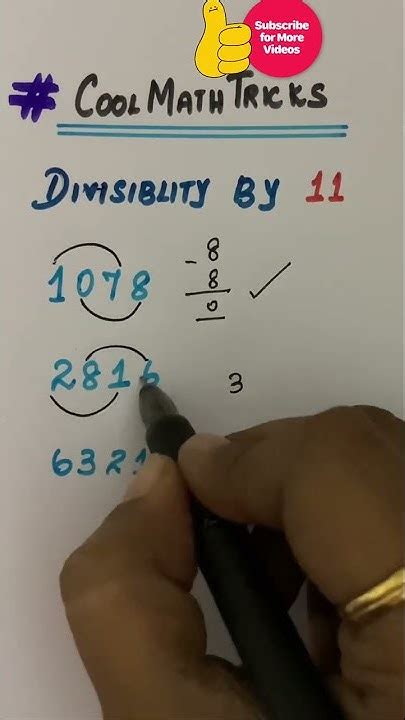 Subscribe
for More
Videos
# COOL MATH TRICKS
DIVISIBLITY BY 11
1078
- 8
8
0
2816
3
6321